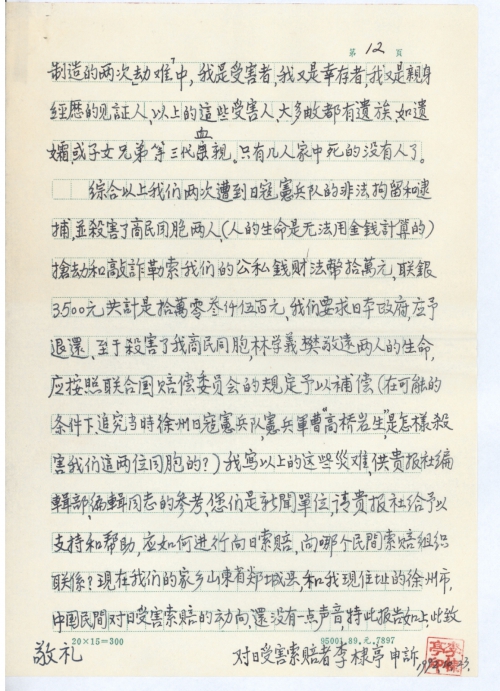 第 12 頁
制造的两次"劫难"中，我是受害者，我又是幸存者，我又是親身
經歷的见証人，以上的這些受害人、大多數都有遺族、如遺
孀，或子女兄弟等三代血親。只有几人家中死的没有人了。
綜合以上我们两次遭到日寇憲兵队的非法拘留和逮
捕，並殺害了商民同胞两人，(人的生命是无法用金錢計算的)
搶劫和敲詐勒索我们的公私錢財法幣拾萬元，联銀
3500元共計是拾萬零叁仟伍百元，我们要求日本政府，应予
退還、至于殺害了我商民同胞，林学義樊敬遠两人的生命，
应按照联合国赔偿委员会的规定予以補偿(在可能的
条件下、追究当時徐州日寇憲兵队，憲兵軍曹"高桥岩生"是怎樣殺
害我们這两位同胞的？)我寫以上的这些災难，供貴报社編
輯部、編輯同志的參考、您们是新聞單位，请貴报社给予以
支持和帮助，应如何進行向日索赔，向哪个民間索赔組織
联係？现在我们的家乡山東省郯城县，和我现住址的徐州市，
中國民間对日受害索赔的动向、還没有一点声音，特此报告如上，此致
20×15=300 95001.89.元.7897
敬礼 对日受害索赔者李棣亭 申訴